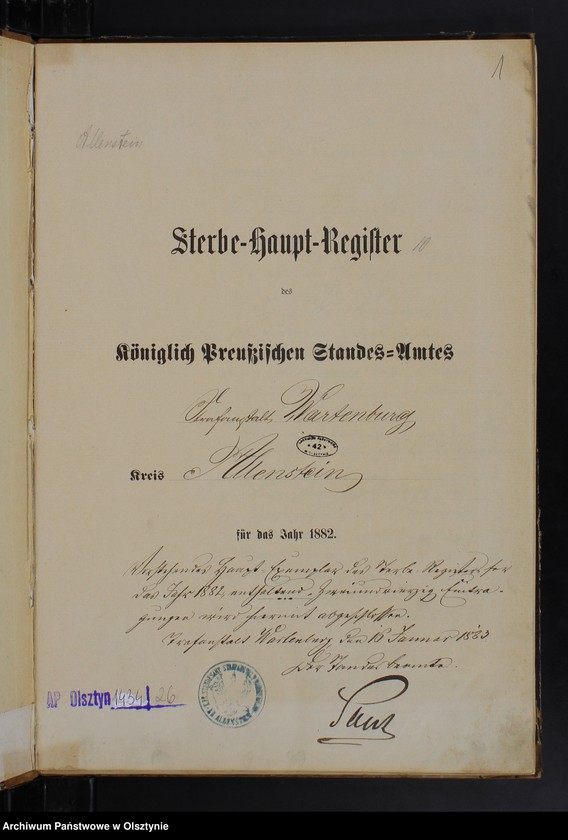 1
Allenstein
Sterbe-Haupt-Register 10
des
Königlich Preußischen Standes-Amtes
Strafanstalt Wartenburg
42
Kreis Allenstein
für das Jahr 1882.
Vorstehendes Haupt-Exemplar des Sterbe-Registers für
das Jahr 1882, enthaltend Eintra-
gungen wird hiermit abgeschlossen.
Strafanstalt Wartenburg den 16 Januar 1883
Der Standesbeamte.
AP Olsztyn 1434/26
Archiwum Państwowe w Olsztynie